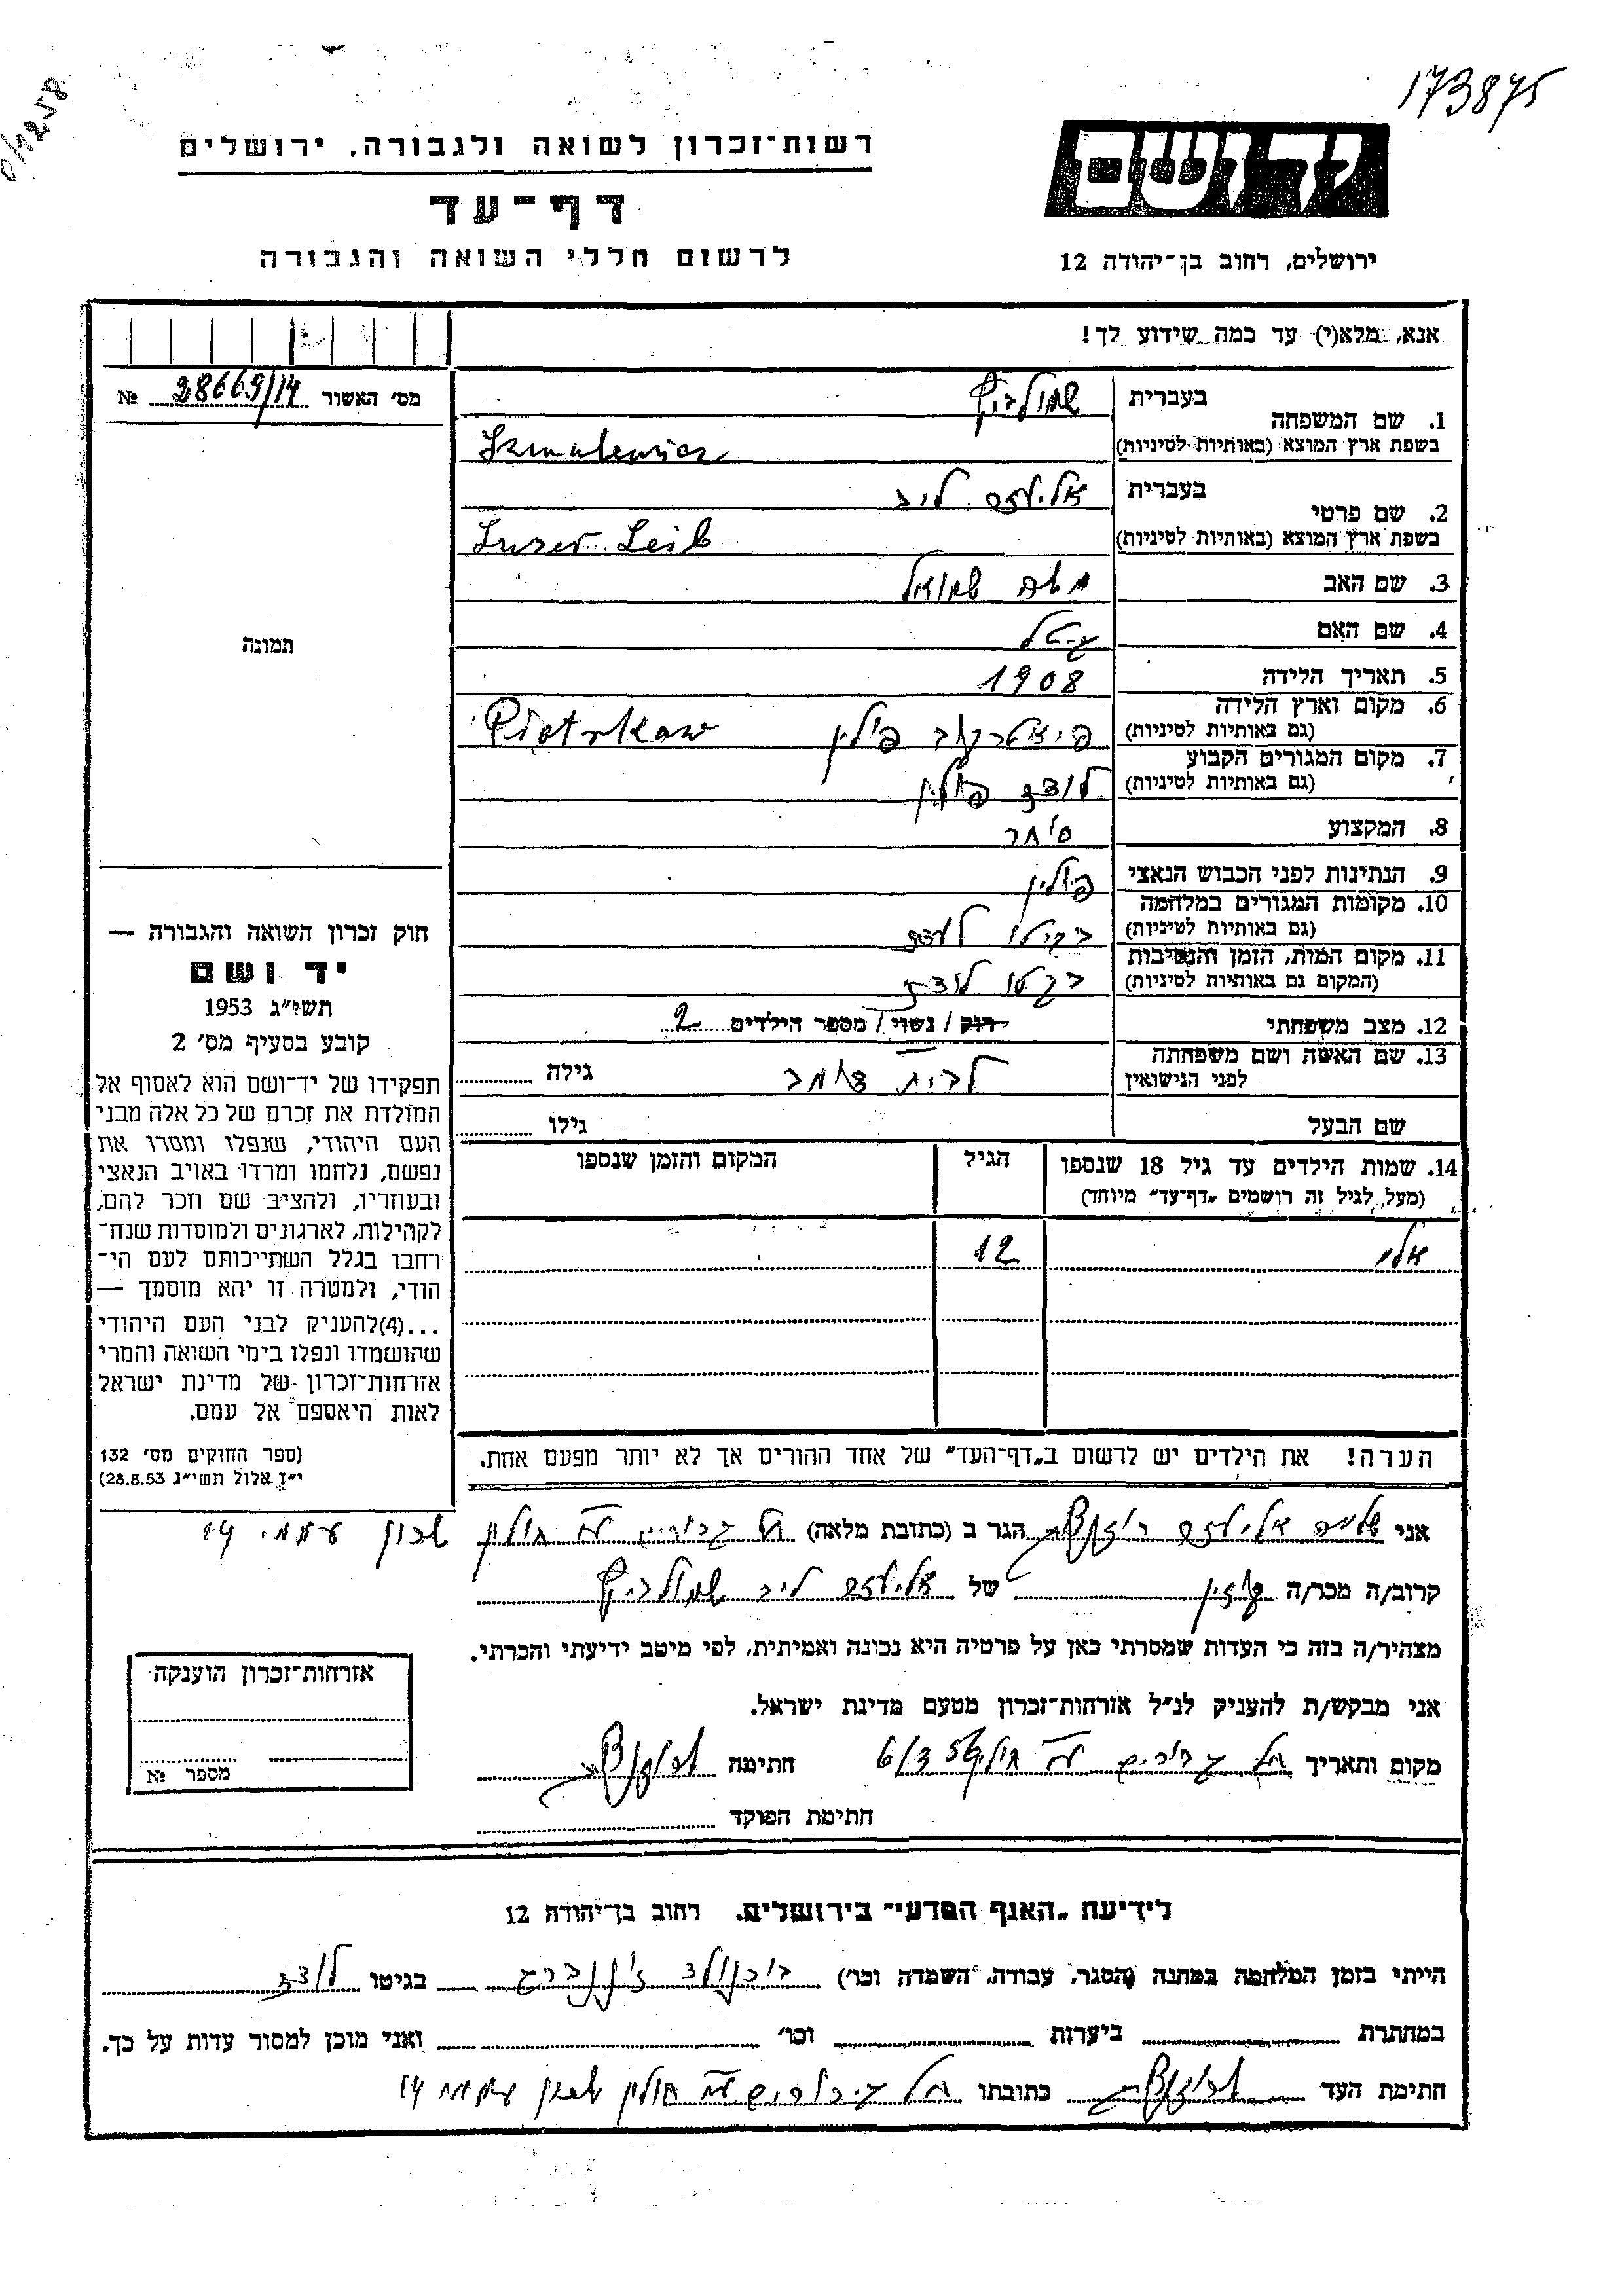 173875
רשות־זכרון לשואה ולגבורה, ירושלים
ידושם
דף־עד
לרשום חללי השואה והגבורה
ירושלים, רחוב בן־יהודה 12
אנא, מלא(י) עד כמה שידוע לך!
מס׳ האשור № 28669/14
1. שם המשפחה בעברית שמולביץ
בשפת ארץ המוצא (באותיות לטיניות) Szmulewicz
2. שם פרטי בעברית אליעזר ליב
בשפת ארץ המוצא (באותיות לטיניות) Luzer Leib
3. שם האב שמואל
4. שם האם גיטל
5. תאריך הלידה 1908
6. מקום וארץ הלידה
(גם באותיות לטיניות) פיוטרקוב פולין Piotrkow
7. מקום המגורים הקבוע
(גם באותיות לטיניות) לודז פולין
8. המקצוע סוחר
9. הנתינות לפני הכבוש הנאצי פולין
10. מקומות המגורים במלחמה
(גם באותיות לטיניות) בגיטו לודז
11. מקום המות, הזמן והנסיבות
(המקום גם באותיות לטיניות) בגטו לודז
12. מצב משפחתי רווק / נשוי / מספר הילדים 2
13. שם האשה ושם משפחתה
לפני הנישואין לבית גילה
שם הבעל גילו
14. שמות הילדים עד גיל 18 שנספו הגיל המקום והזמן שנספו
(מעל לגיל זה רושמים „דף־עד״ מיוחד)
אלי 12
הערה! את הילדים יש לרשום ב„דף־העד״ של אחד ההורים אך לא יותר מפעם אחת.
תמונה
חוק זכרון השואה והגבורה —
יד ושם
תשי״ג 1953
קובע בסעיף מס׳ 2
תפקידו של יד־ושם הוא לאסוף אל
המולדת את זכרם של כל אלה מבני
העם היהודי, שנפלו ומסרו את
נפשם, נלחמו ומרדו באויב הנאצי
ובעוזריו, ולהציב שם וזכר להם,
לקהילות, לארגונים ולמוסדות שנח־
רחבו בגלל השתייכותם לעם הי־
הודי, ולמטרה זו יהא מוסמך —
...(4)להעניק לבני העם היהודי
שהושמדו ונפלו בימי השואה והמרי
אזרחות־זכרון של מדינת ישראל
לאות היאספם אל עמם.
(ספר החוקים מס׳ 132
י״ז אלול תשי״ג 28.8.53)
אני שלמה אליעזר הגר ב (כתובת מלאה) תל גבורים חולון שכון עממי 14
קרוב/ה מכר/ה של אליעזר ליב שמולביץ
מצהיר/ה בזה כי העדות שמסרתי כאן על פרטיה היא נכונה ואמיתית, לפי מיטב ידיעתי והכרתי.
אני מבקש/ת להעניק לנ״ל אזרחות־זכרון מטעם מדינת ישראל.
מקום ותאריך תל גבורים חולון חתימה
חתימת הפוקד
אזרחות־זכרון הוענקה
מספר №
לידיעת „האגף המדעי״ בירושלים, רחוב בן־יהודה 12
הייתי בזמן המלחמה במחנה (הסגר, עבודה, השמדה וכו׳) בוכנולד בגיטו לודז
במחתרת ביערות וכו׳ ואני מוכן למסור עדות על כך.
חתימת העד כתובתו תל גיבורים חולון שכון עממי 14